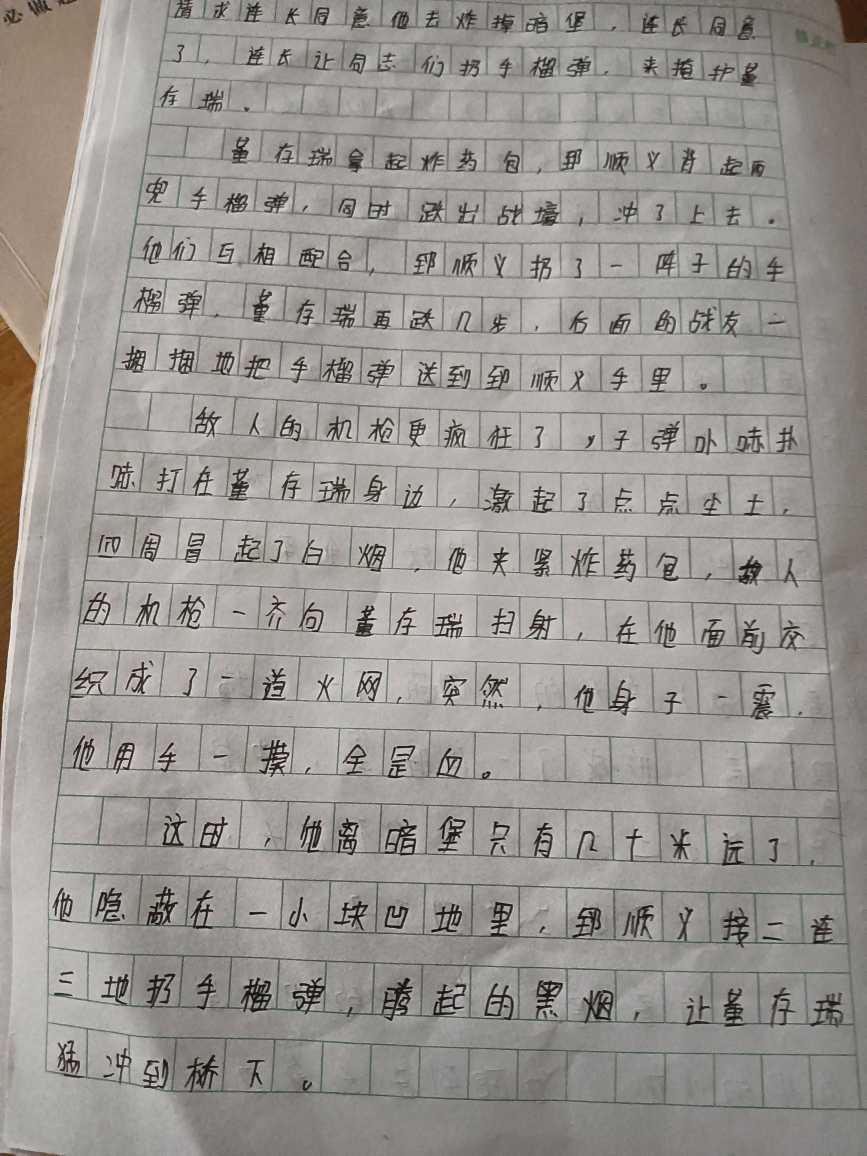 必做
请求连长同意他去炸掉暗堡，连长同意
了，连长让同志们扔手榴弹，来掩护董
存瑞。
董存瑞拿起炸药包，郅顺义背起两
兜手榴弹，同时跃出战壕，冲了上去。
他们互相配合，郅顺义扔了一阵子的手
榴弹，董存瑞再跃几步，后面的战友一
捆捆地把手榴弹送到郅顺义手里。
敌人的机枪更疯狂了，子弹卟哧扑
哧打在董存瑞身边，激起了点点尘土，
四周冒起了白烟，他夹紧炸药包，敌人
的机枪一齐向董存瑞扫射，在他面前交
织成了一道火网，突然，他身子一震，
他用手一摸，全是血。
这时，他离暗堡只有几十米远了，
他隐蔽在一小块凹地里，郅顺义接二连
三地扔手榴弹，腾起的黑烟，让董存瑞
猛冲到桥下。